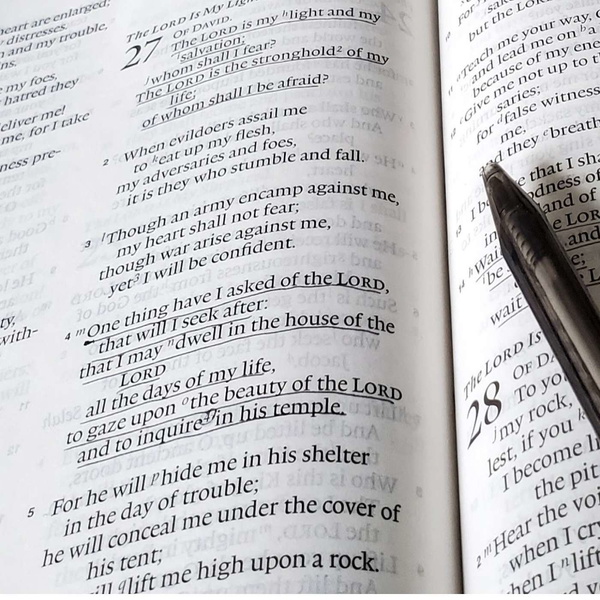 eart are enlarged;
distresses.
and my trouble,
ns.
my foes,
hatred they
eliver me!
me, for I take
ness pre-
ty,
with-
THE LORD IS MY LIG
27 OF DAVID.
The LORD is my hlight and my
isalvation;
jwhom shall I fear?
The LORD is the stronghold2 of my
life;
of whom shall I be afraid?
2 When evildoers assail me
to keat up my flesh,
my adversaries and foes,
it is they who stumble and fall.
3 lThough an army encamp against me,
my heart shall not fear;
though war arise against me,
yet3 I will be confident.
4 mOne thing have I asked of the LORD,
that will I seek after:
that I may ndwell in the house of the
LORD
all the days of my life,
to gaze upon othe beauty of the LORD
and to inquire in his temple.
5 For he will phide me in his shelter
in the day of trouble;
he will conceal me under the cover of
his tent;
ill qlift me high upon a rock.
but the LORD
Teach me your way,
and lead me on ba
because of my ene
Give me not up to t
saries;
for dfalse witness
me,
they ebreath
that I sha
dness of
and of
14 hWai
be
wait
The LORD Is
28 OF DA
To yo
jmy rock,
lest, if you
I become li
the pit
2 mHear the voi
when I cry
hen I nlift